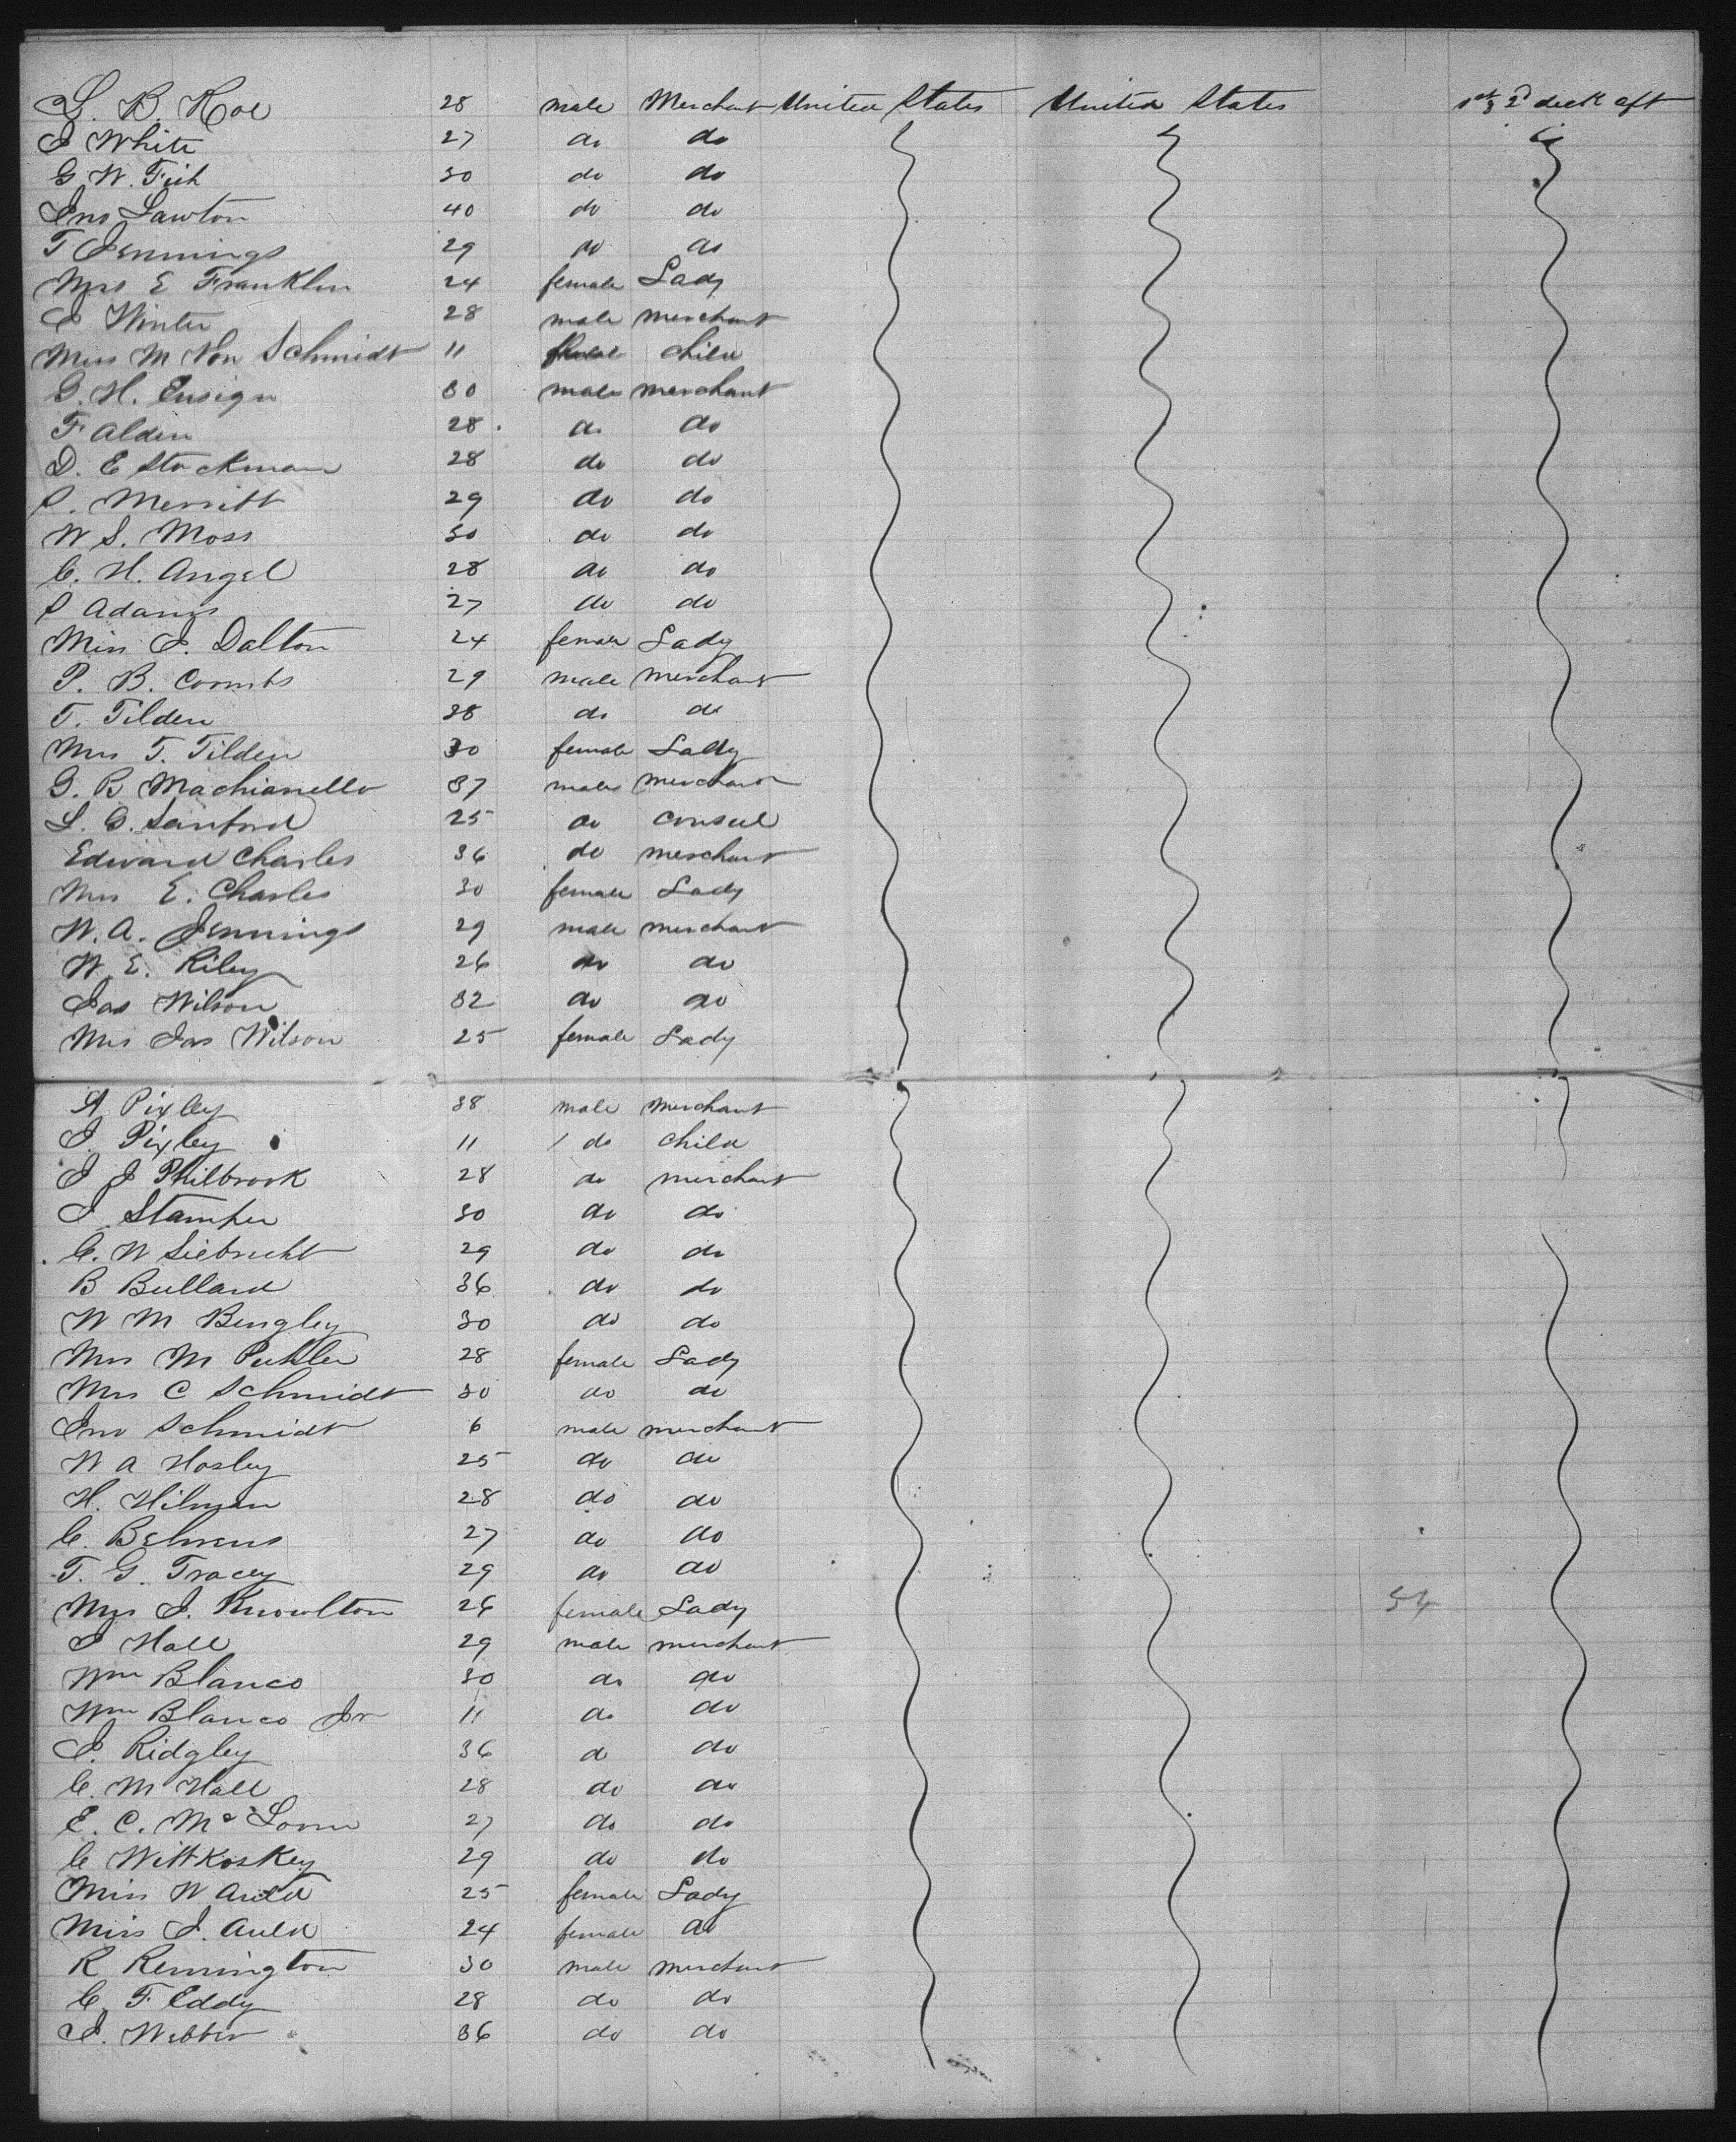 L. B. Roe 28 male Merchant United States United States 1st & 2d deck aft
J White 27 do do
G W. Fish 30 do do
Jno Lawton 40 do do
T Jennings 29 do do
Mrs E Franklin 24 female Lady
J Winter 28 male merchant
Miss M Von Schmidt 11 child
G. H. Ensign 30 male merchant
F Alden 28 do do
D. E Stockman 28 do do
S. Merritt 29 do do
W S. Moss 30 do do
C. H. Angel 28 do do
S Adams 27 do do
Miss J. Dalton 24 female Lady
P. B. Coombs 29 male merchant
T. Tilden 38 do do
Mrs T. Tilden 30 female Lady
G. B Machianello 37 male merchant
L. C. Sanford 25 do consul
Edward Charles 36 do merchant
Mrs E. Charles 30 female Lady
W. A. Jennings 29 male merchant
W. E. Riley 26 do do
Jas Wilson 32 do do
Mrs Jas Wilson 25 female Lady
A Pixley 38 male merchant
J. Pixley 11 do child
J J Philbrook 28 do merchant
J Stamper 30 do do
C. W Siebrecht 29 do do
B Bullard 36 do do
W M Bengley 30 do do
Mrs M 28 female Lady
Mrs C Schmidt 30 do do
Jno Schmidt 6 male merchant
W A Hosley 25 do do
H. Hilman 28 do do
C. Behrens 27 do do
T. G. Tracey 29 do do
Mrs J. Knowlton 26 female Lady 54
J Hall 29 male merchant
Wm Blanco 30 do do
Wm Blanco Jr 11 do do
J. Ridgley 36 do do
C. M Hall 28 do do
E. C. Mc Loon 27 do do
C Wittkoskey 29 do do
Miss W Auld 25 female Lady
Miss J. Auld 24 female do
R Remington 30 male merchant
C. F Eddy 28 do do
J. Webber 36 do do